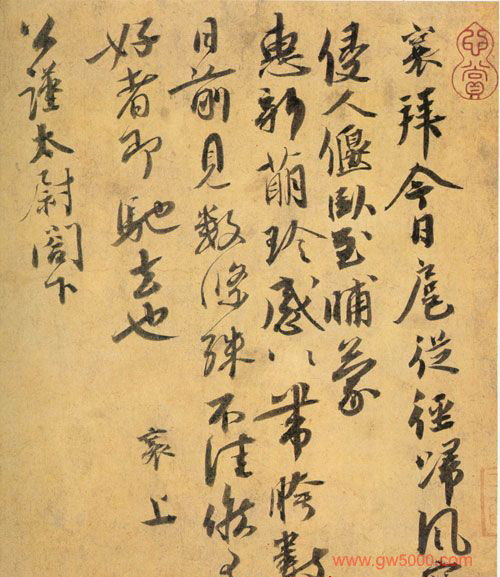 襄拜今日扈從徑歸風
侵人偃臥至晡蒙
惠新萌珍感〻帶胯數
日前見數條殊不佳候
好者即馳去也
襄上
公謹太尉閣下
www.gw5000.com